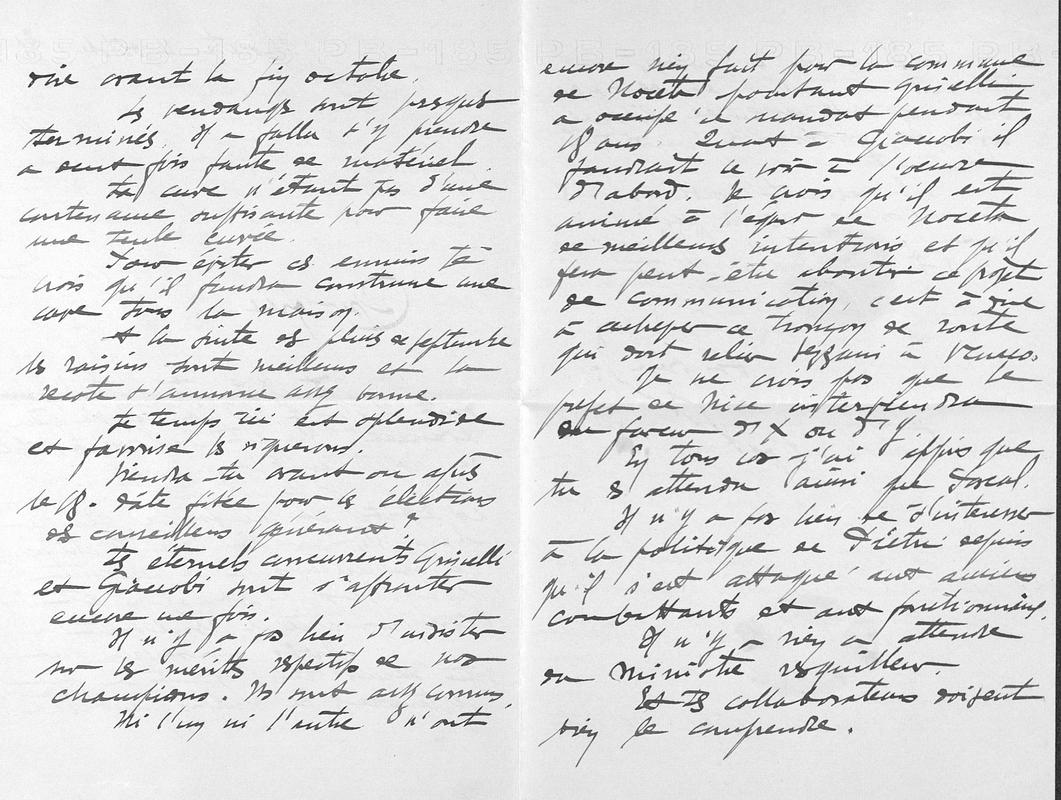 rive avant la fin octobre.
Les vendanges sont presque
terminés. Il a fallu s'y prendre
a cent fois faute de matériel
La cuve n'étant pas d'une
contenance suffisante pour faire
une seule cuvée.
Pour éviter ces ennuis je
crois qu'il faudra construire une
cave sous la maison.
A la suite des pluies de septembre
les raisins sont meilleurs et la
recolte s'annonce assez bonne.
Le temps ici est splendide
et favorise les vignerons.
Viendra-tu avant ou après
le 18. date fixée pour les élections
des conseillers généraux?
Les éternels concurrents Griselli
et Giacobi vont s'affronter
encore une fois.
Il n'y a pas lieu d'insister
sur les mérites respectifs de nos
champions. Ils sont assez connus.
Ni l'un ni l'autre n'ont
encore rien fait pour la commune
de Noceta pourtant Griselli
a occupé le mandat pendant
18 ans. Quant à Giacobi il
faudrait le voir à l'oeuvre
d'abord. Je crois qu'il est
animé à l'égard de Noceta
de meilleurs intentions et qu'il
fera peut-être aboutir ce projet
de communication, c'est à dire
à achever ce tronçon de route
qui doit relier Vezzani à Venaco.
Je ne crois pas que le
prefet de Nice interviendra
en faveur d'X ou d'Y
En tous cas j'ai appris que
tu es attendu ainsi que Pascal.
Il n'y a pas lieu de s'interesser
à la politique de Piétri depuis
qu'il s'est attaqué aux anciens
combattants et aux fonctionnaires.
Il n'y a rien a attendre
du Ministre resquilleur.
Et ses collaborateurs doivent
bien le comprendre.